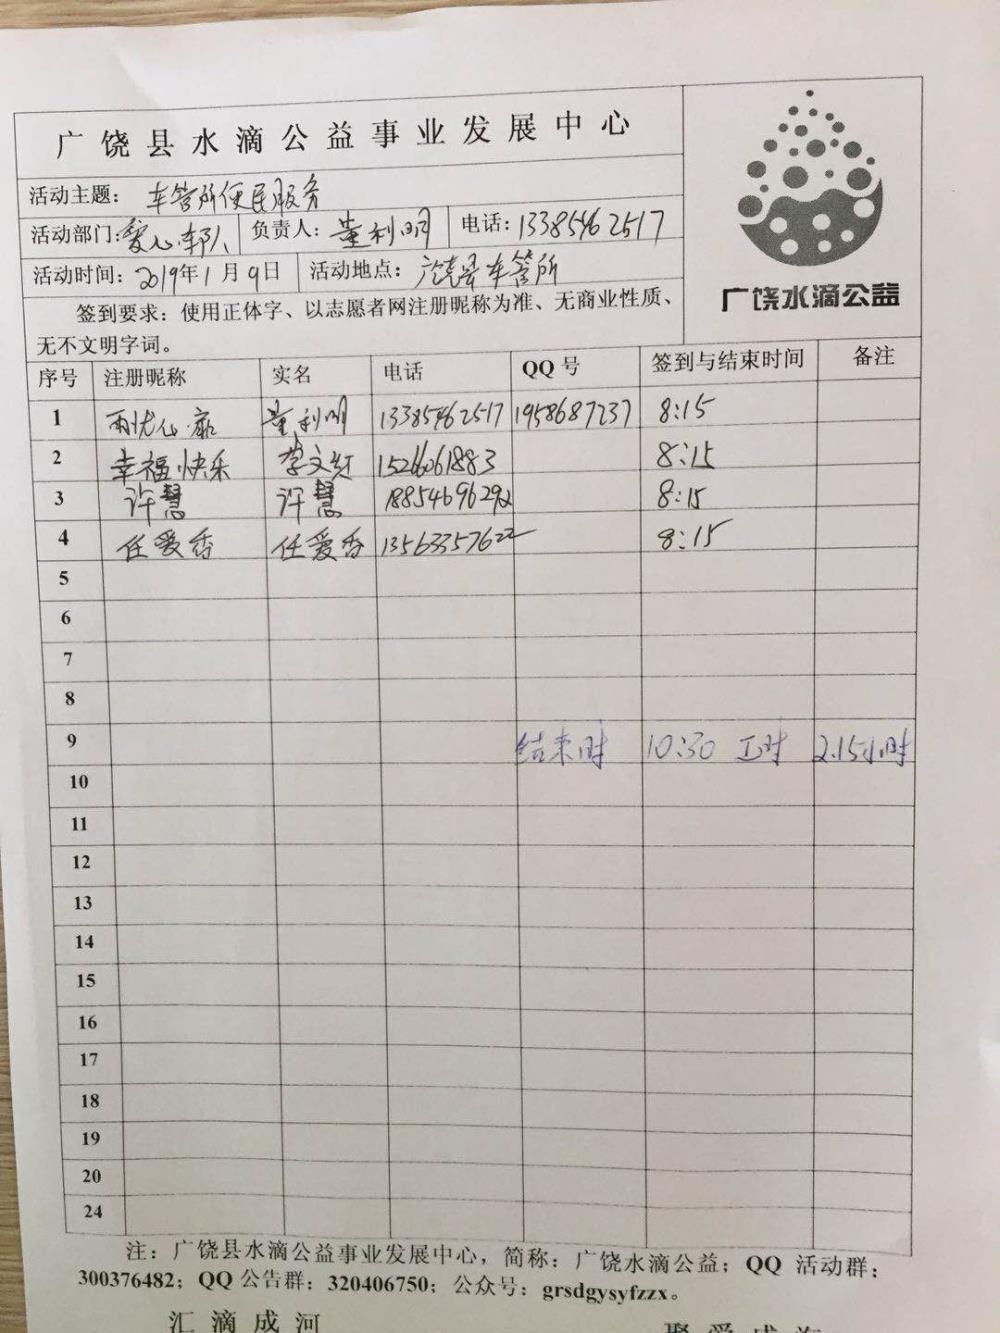 广饶县水滴公益事业发展中心
活动主题：车管所便民服务
活动部门：爱心车队 负责人：董利明 电话：13385462517
活动时间：2019年1月9日 活动地点：广饶县车管所
签到要求：使用正体字、以志愿者网注册昵称为准、无商业性质、
无不文明字词。
广饶水滴公益
序号 注册昵称 实名 电话 QQ号 签到与结束时间 备注
1 董利明 13385462517 1958687237 8:15
2 幸福快乐 李文红 15266061883 8:15
3 许慧 许慧 18854696292 8:15
4 任爱香 任爱香 13563357622 8:15
5
6
7
8
9 结束时 10:30 工时 2.15小时
10
11
12
13
14
15
16
17
18
19
20
24
注：广饶县水滴公益事业发展中心，简称：广饶水滴公益；QQ 活动群：
300376482；QQ公告群：320406750；公众号：grsdgysyfzzx。
汇滴成河 聚爱成海